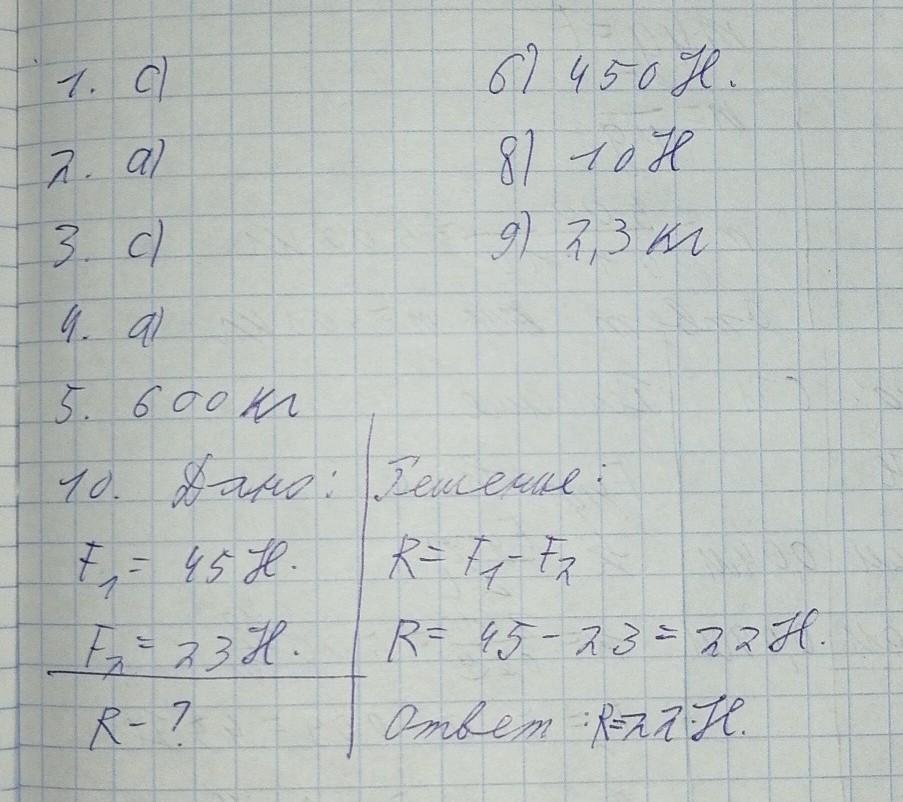 1. c)
2. a)
3. c)
4. a)
5. 600 кг
6) 450 Н.
8) 10 Н
9) 2,3 кг
10. Дано:
F₁ = 45 Н.
F₂ = 23 Н.
R - ?
Решение:
R = F₁ - F₂
R = 45 - 23 = 22 Н.
Ответ : R=22 Н.